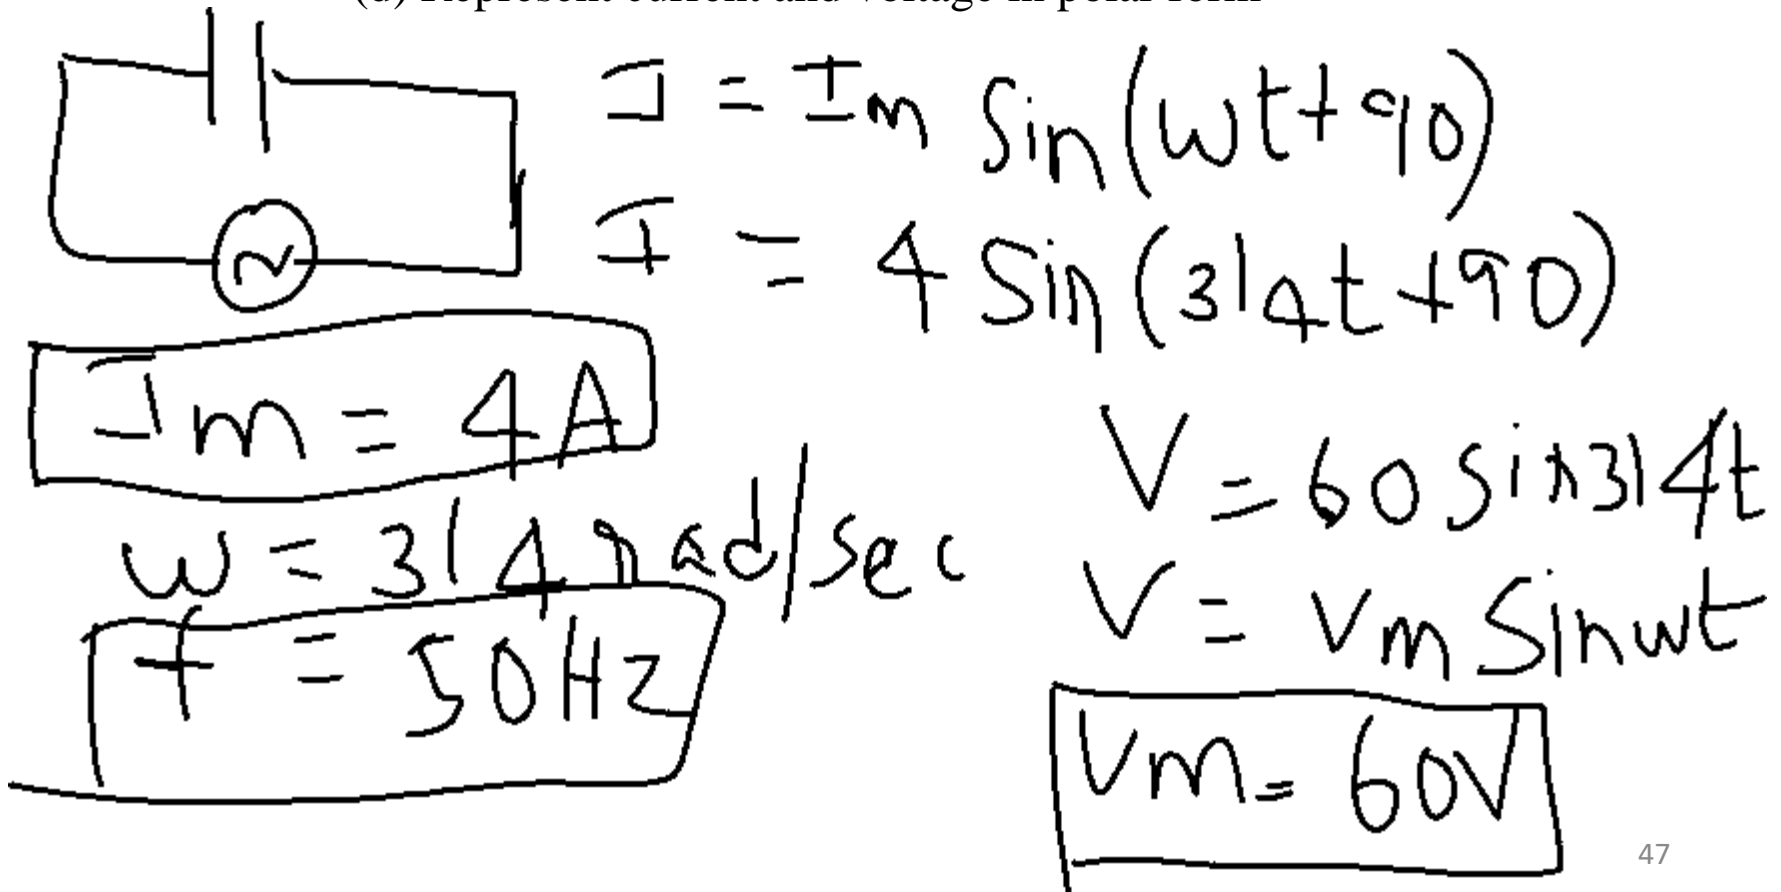 (d) Represent current and voltage in polar form
I = Im Sin(wt+90)
I = 4 Sin(314t+90)
Im = 4A
w = 314 rad/sec
f = 50Hz
V = 60 Sin314t
V = Vm Sinwt
Vm = 60V
47